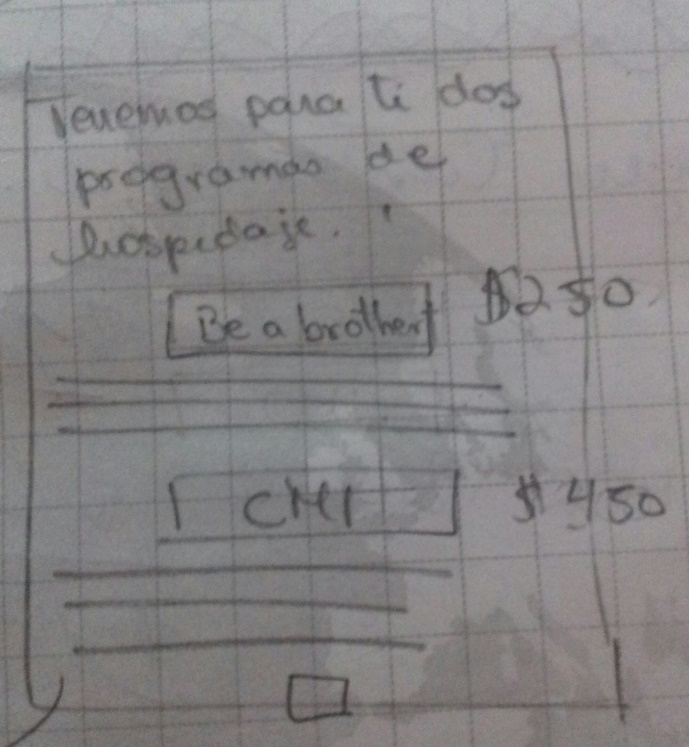 Tenemos para ti dos
programas de
hospedaje.
Be a brother $250
CMI $450